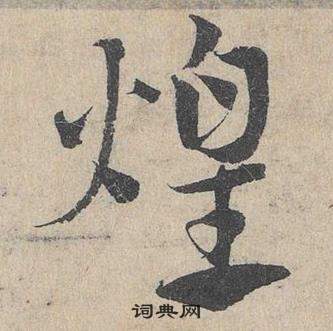 煌
词典网